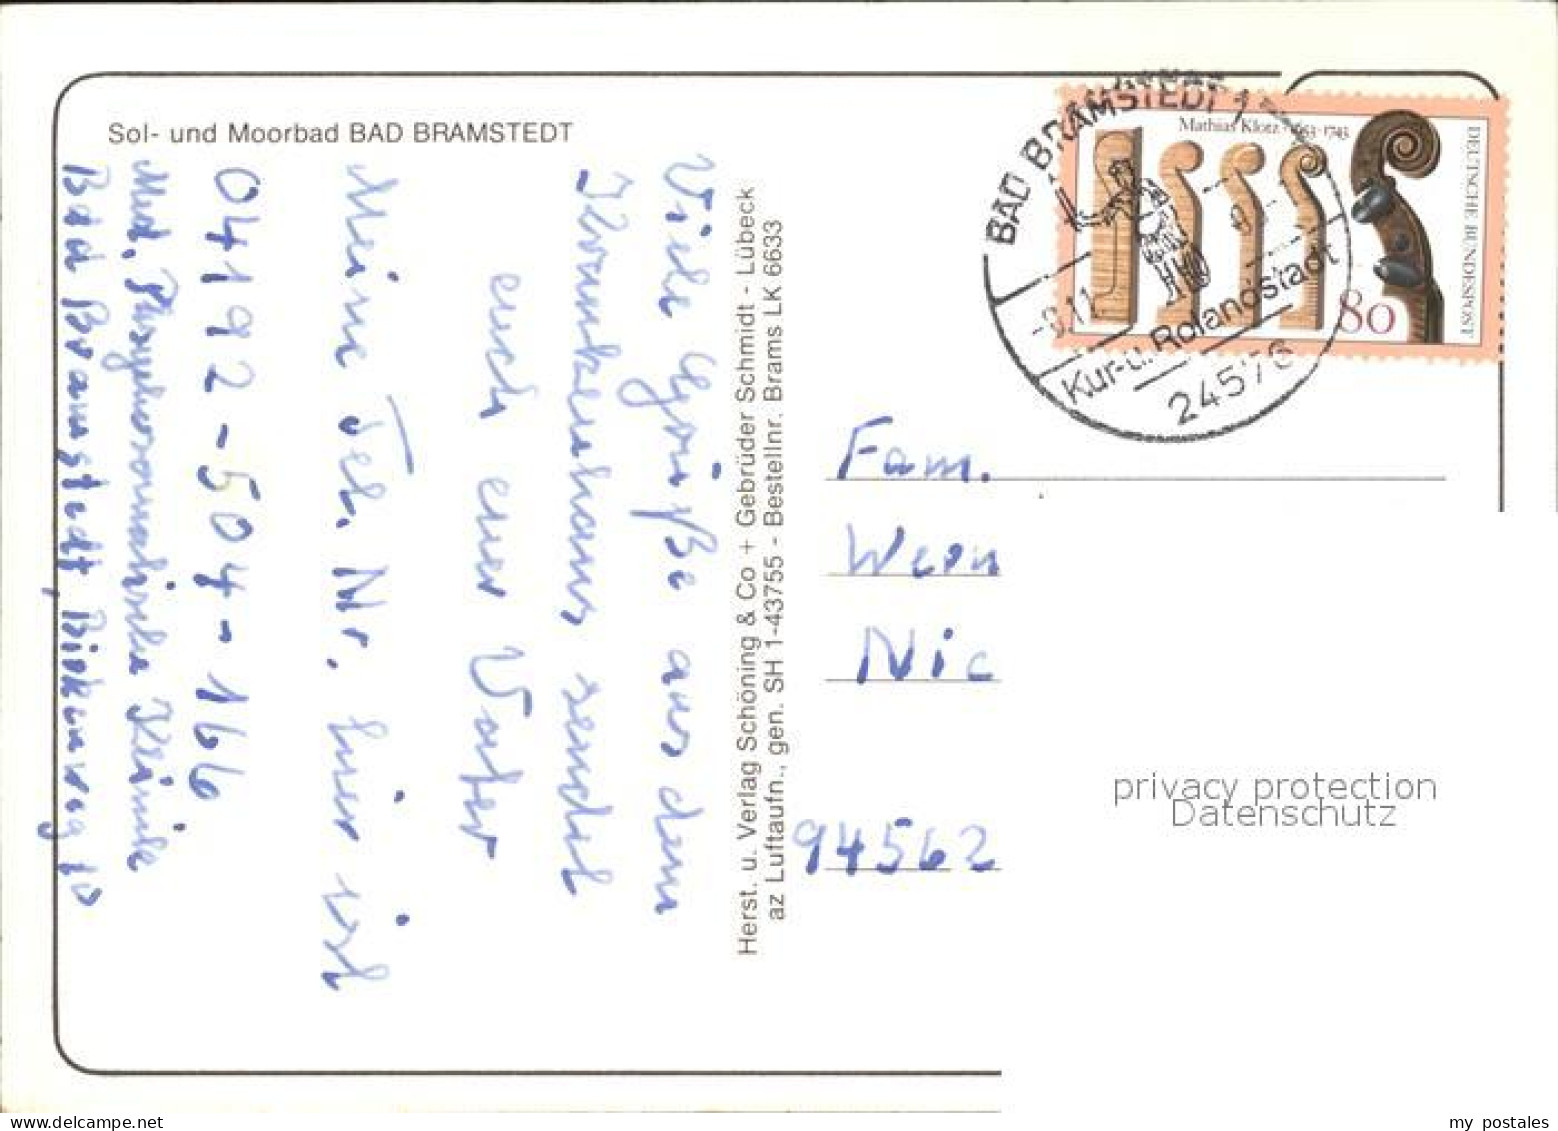 Sol- und Moorbad BAD BRAMSTEDT
Viele Grüße aus dem
Krankenhaus sendet
euch euer Vater
Meine Tel. Nr. hier ist
04192-504-166
Med. Psychosomatische Klinik
Bad Bramstedt, Birkenweg 10
Herst. u. Verlag Schöning & Co + Gebrüder Schmidt - Lübeck
az Luftaufn., gen. SH 1-43755 - Bestellnr. Brams LK 6633
BAD BRAMSTEDT 1
Kur- u. Rolandstadt
24576
Mathias Klotz · 1653-1743
DEUTSCHE BUNDESPOST
80
Fam.
Wern
Nic
94562
privacy protection
Datenschutz
my postales